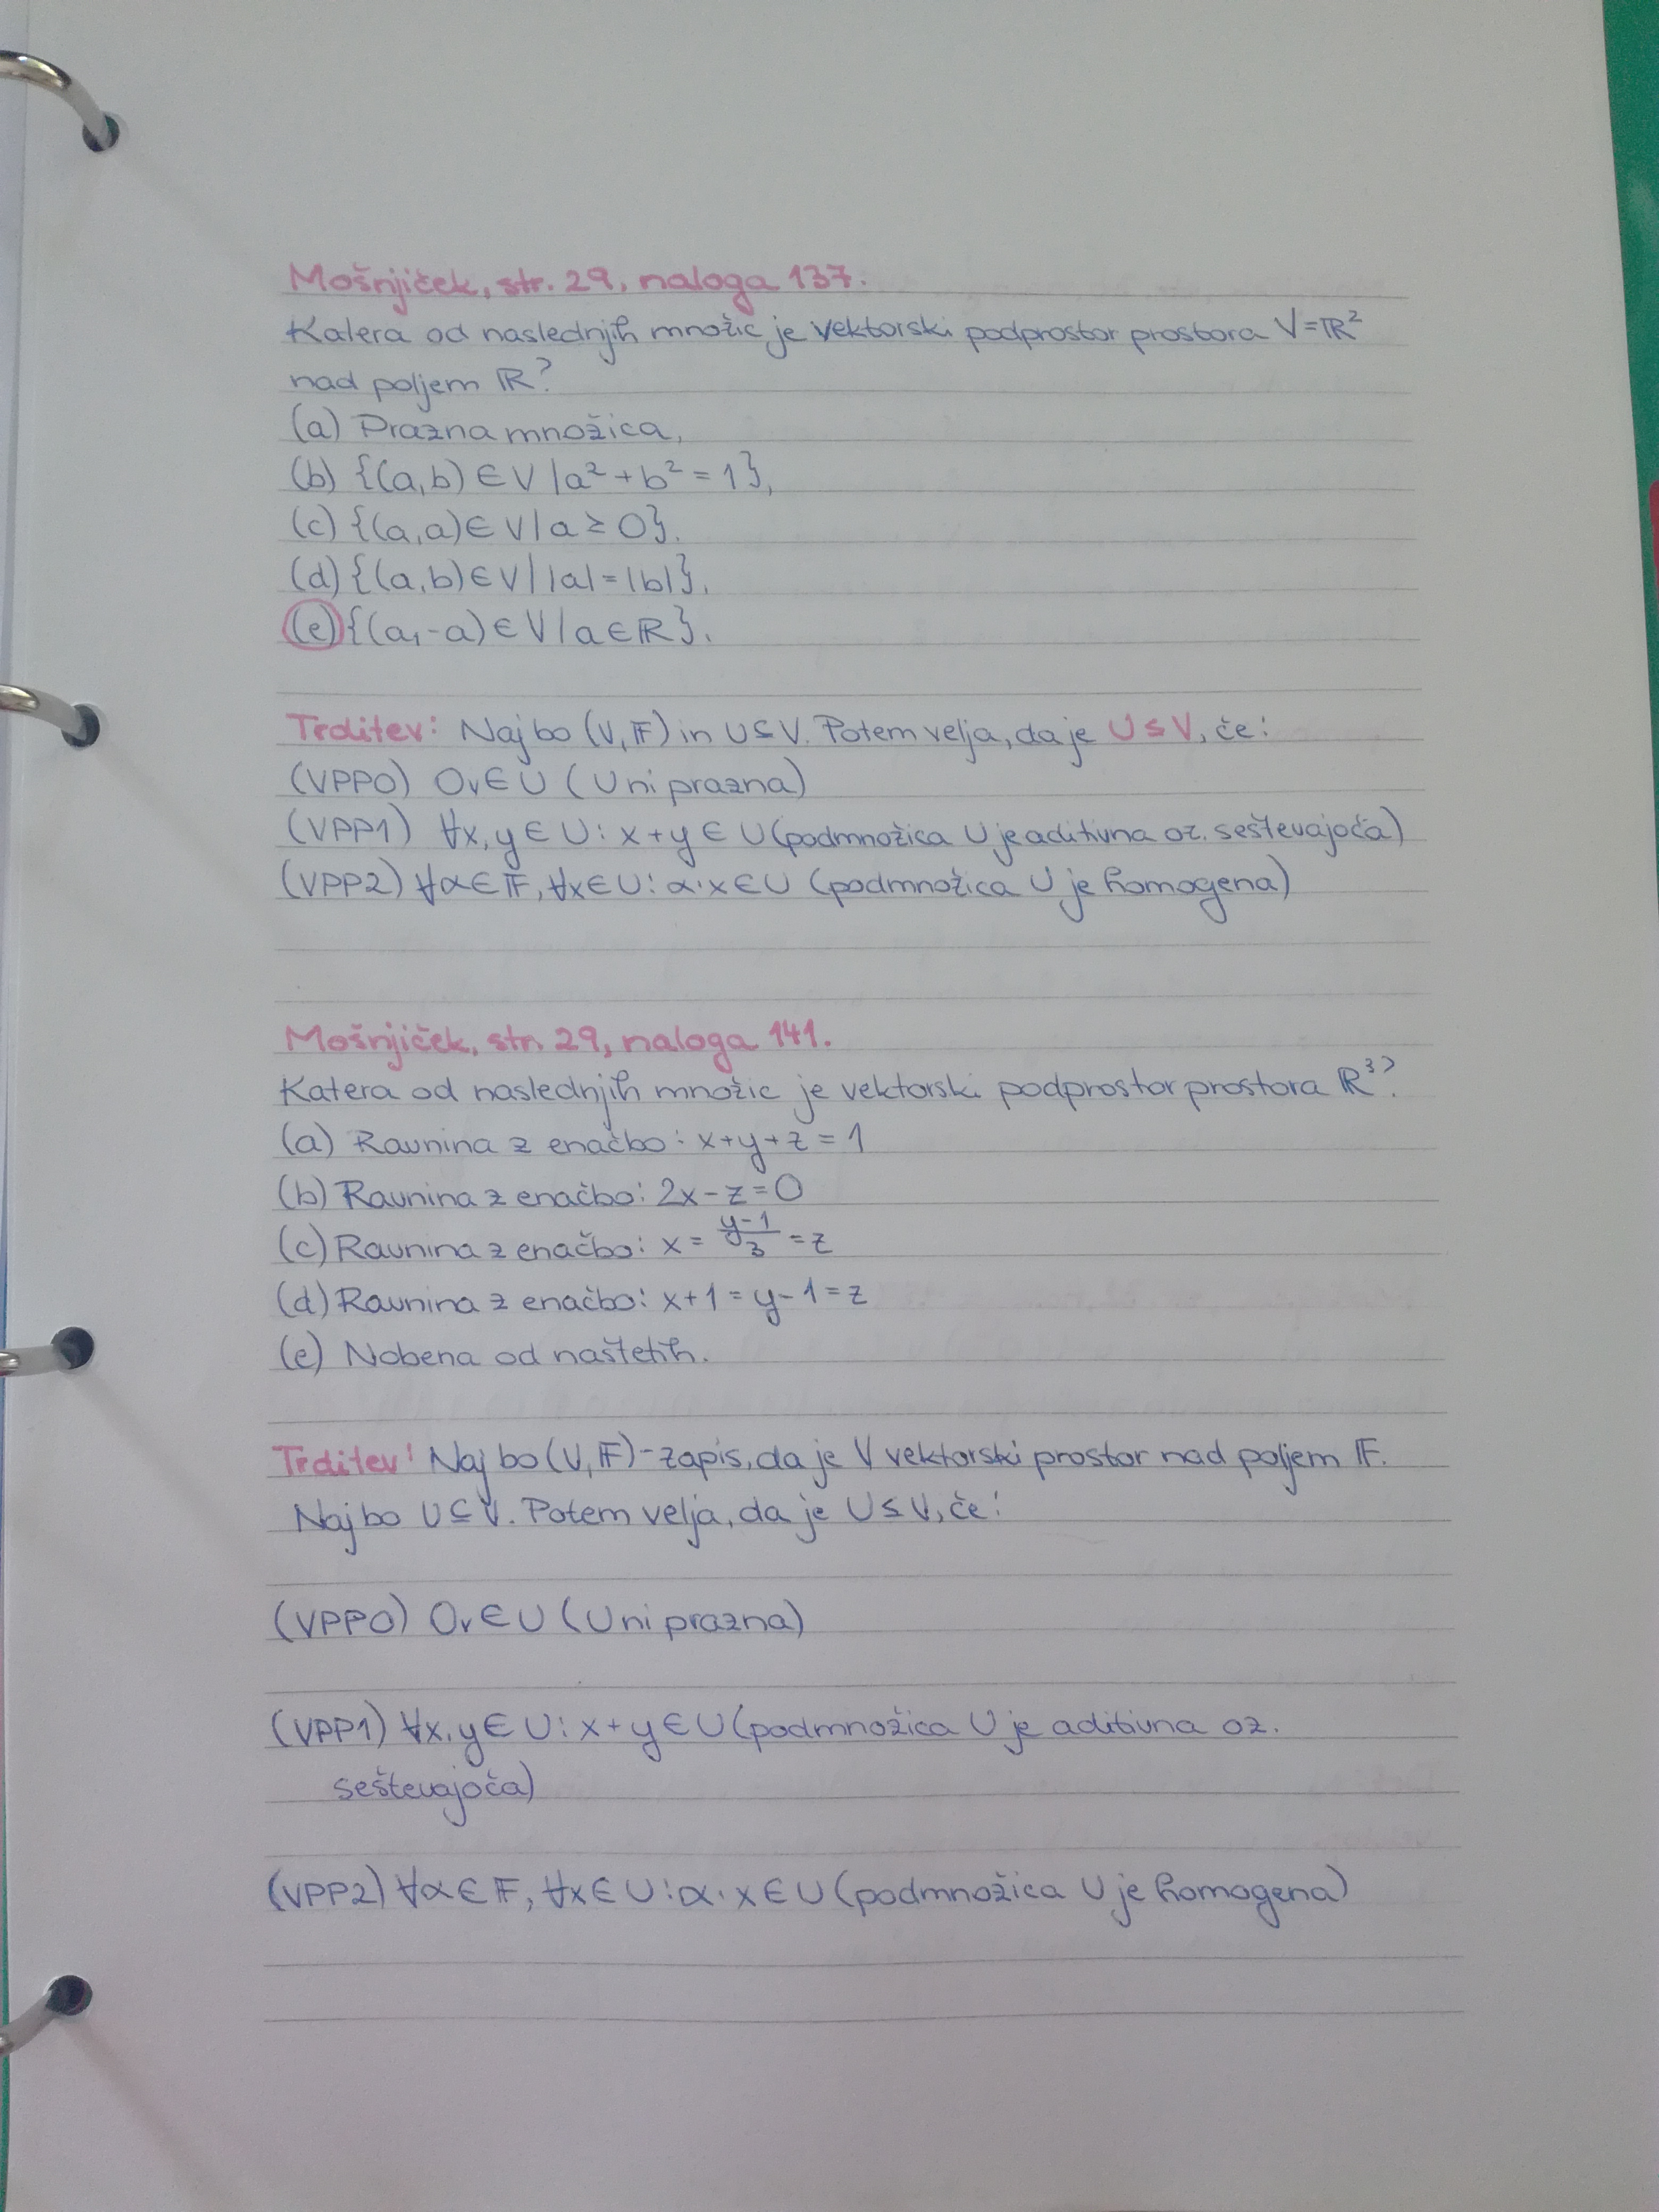 Mošnjiček, str. 29, naloga 137.
Katera od naslednjih množic je vektorski podprostor prostora V=ℝ²
nad poljem ℝ?
(a) Prazna množica,
(b) {(a,b) ∈ V | a² + b² = 1},
(c) {(a,a) ∈ V | a ≥ 0},
(d) {(a,b) ∈ V | |a| = |b|},
(e) {(a,-a) ∈ V | a ∈ ℝ}.
Trditev: Naj bo (V,𝔽) in U⊆V. Potem velja, da je U≤V, če:
(VPP0) 0ᵥ∈U (U ni prazna)
(VPP1) ∀x,y ∈ U: x+y ∈ U (podmnožica U je aditivna oz. seštevajoča)
(VPP2) ∀α∈𝔽, ∀x∈U: α·x∈U (podmnožica U je homogena)
Mošnjiček, str. 29, naloga 141.
Katera od naslednjih množic je vektorski podprostor prostora ℝ³?
(a) Ravnina z enačbo: x+y+z = 1
(b) Ravnina z enačbo: 2x-z=0
(c) Ravnina z enačbo: x = (y-1)/3 = z
(d) Ravnina z enačbo: x+1 = y-1 = z
(e) Nobena od naštetih.
Trditev: Naj bo (V,𝔽)-zapis, da je V vektorski prostor nad poljem 𝔽.
Naj bo U⊆V. Potem velja, da je U≤V, če:
(VPP0) 0ᵥ∈U (U ni prazna)
(VPP1) ∀x,y∈U: x+y∈U (podmnožica U je aditivna oz.
seštevajoča)
(VPP2) ∀α∈𝔽, ∀x∈U: α·x∈U (podmnožica U je homogena)